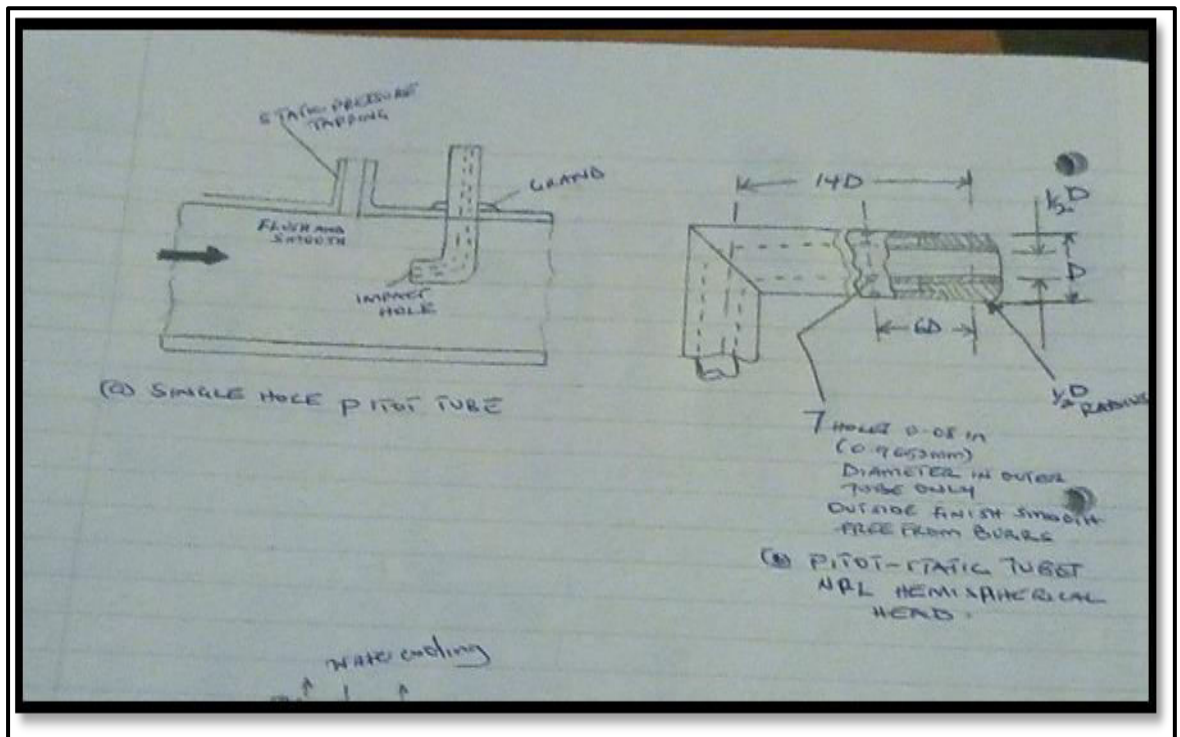 STATIC PRESSURE
TAPPING
GRAND
FLUSH AND
SMOOTH
IMPACT
HOLE
(a) SINGLE HOLE PITOT TUBE
14D
1/2 D
D
6D
1/2 D
RADIUS
7 HOLES
DIAMETER IN OUTER
TUBE ONLY
OUTSIDE FINISH SMOOTH
FREE FROM BURRS
PITOT-STATIC TUBE
NPL HEMISPHERICAL
HEAD.
Water cooling